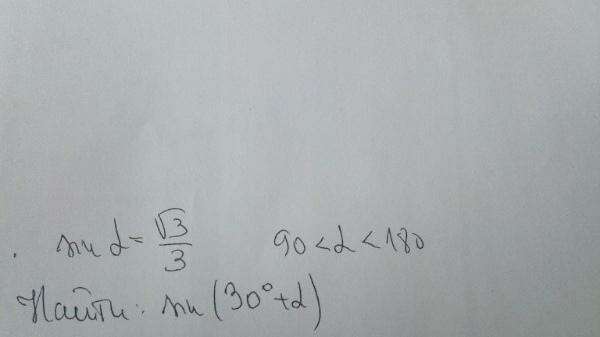 sin α = √3/3 90 < α < 180
Найти: sin (30° + α)